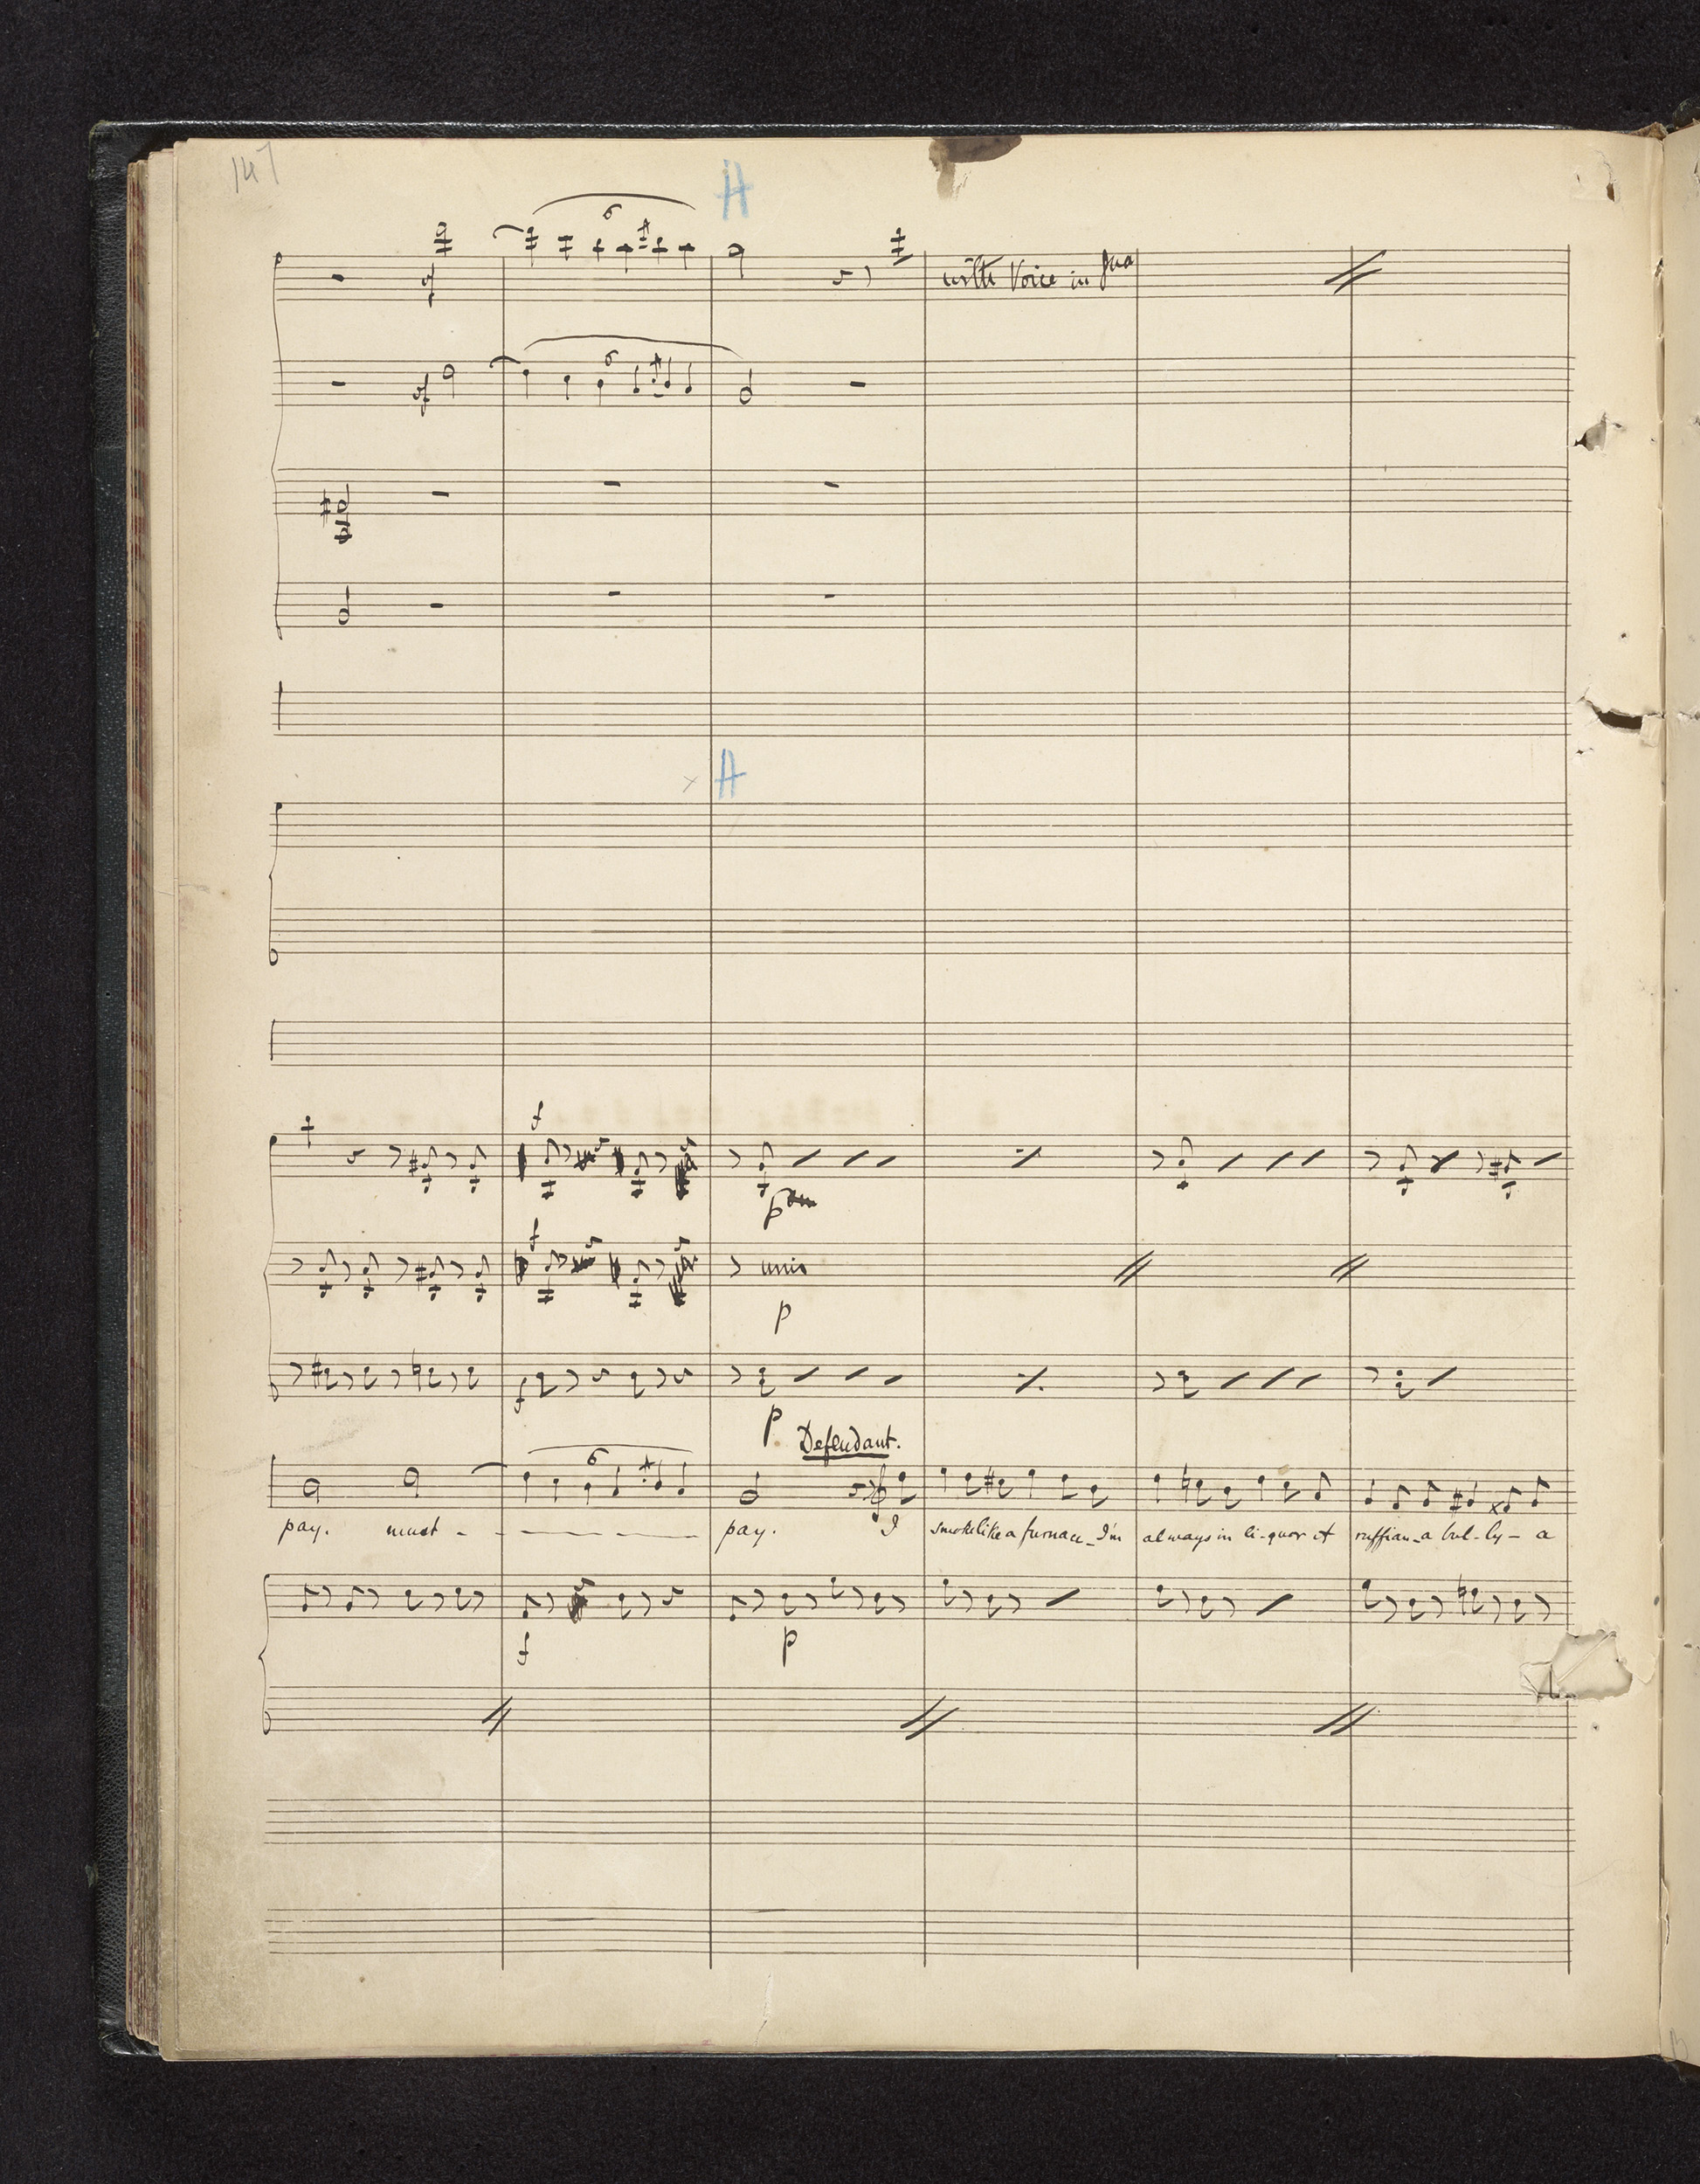 147
H
6
sf
with Voice in 8va
6
sf
H
f
p
f
unis
p
f
p
Defendant.
6
pay. must - - - - - - pay. I smoke like a furnace - I'm always in li-quor A ruffian - a bul-ly - a
f
p